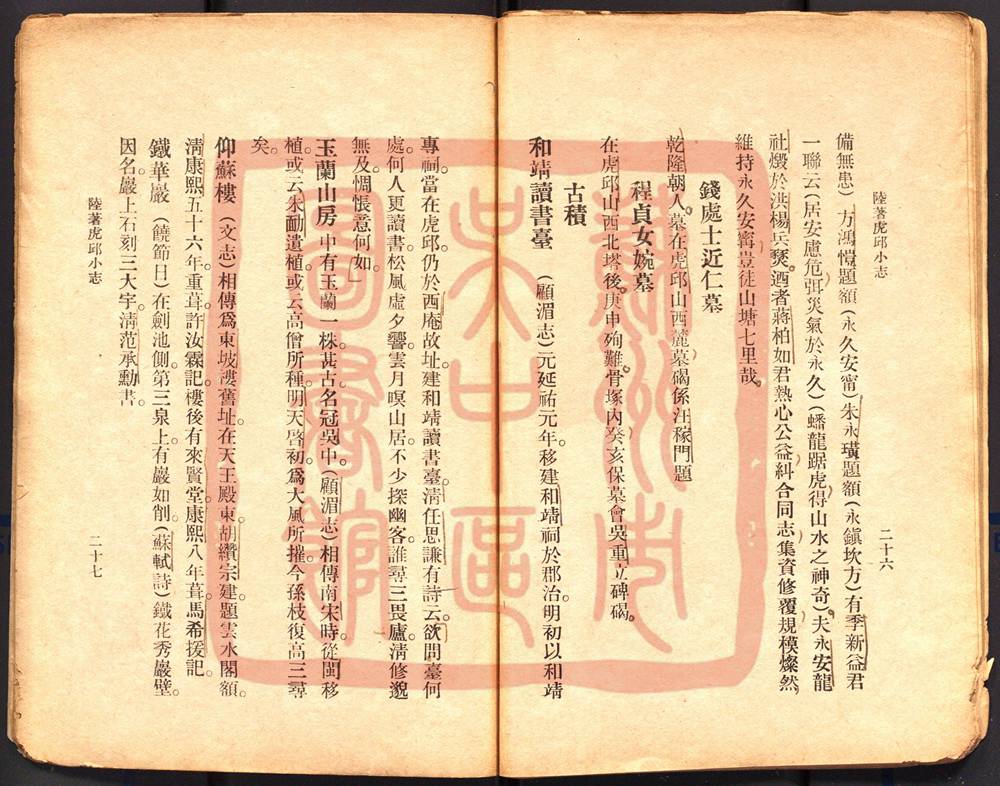 陸著虎邱小志
二十六
備無患）方鴻愷題額（永久安甯）朱永璜題額（永鎭坎方）有季新益君
一聯云（居安慮危弭災氣於永久）（蟠龍踞虎得山水之神奇）夫永安龍
社燬於洪楊兵燹。迺者蔣柏如君熱心公益糾合同志集資修覆規模燦然
維持永久安甯豈徒山塘七里哉。
錢處士近仁墓
乾隆朝人。墓在虎邱山西麓墓碣係汪稼門題
程貞女婉墓
在虎邱山西北塔後。庚申殉難。骨塚內癸亥保墓會吳重立碑碣。
古積
和靖讀書臺　（顧湄志）元延祐元年。移建和靖祠於郡治。明初以和靖
專祠。當在虎邱。仍於西庵故址。建和靖讀書臺。淸任思謙有詩云。欲問臺何
處。何人更讀書。松風虛夕響。雲月暝山居。不少探幽客。誰尋三畏廬。淸修邈
無及。惆悵意何如。」
玉蘭山房　中有玉蘭一株。甚古。名冠吳中。（顧湄志）相傳南宋時。從閩移
植。或云朱勔遺植。或云高僧所種。明天啓初。爲大風所摧。今孫枝復高三尋
矣。
仰蘇樓　（文志）相傳爲東坡樓舊址。在天王殿東。胡纘宗建。題雲水閣額。
淸康熙五十六年。重葺。許汝霖記。樓後有來賢堂。康熙八年葺。馬希援記。
鐵華巖　（饒節日）在劍池側。第三泉上。有巖如削。（蘇軾詩）鐵花秀巖壁。
因名。巖上石刻三大字。淸范承勳書。
陸著虎邱小志
二十七
蘇州市
吳中區
圖書館